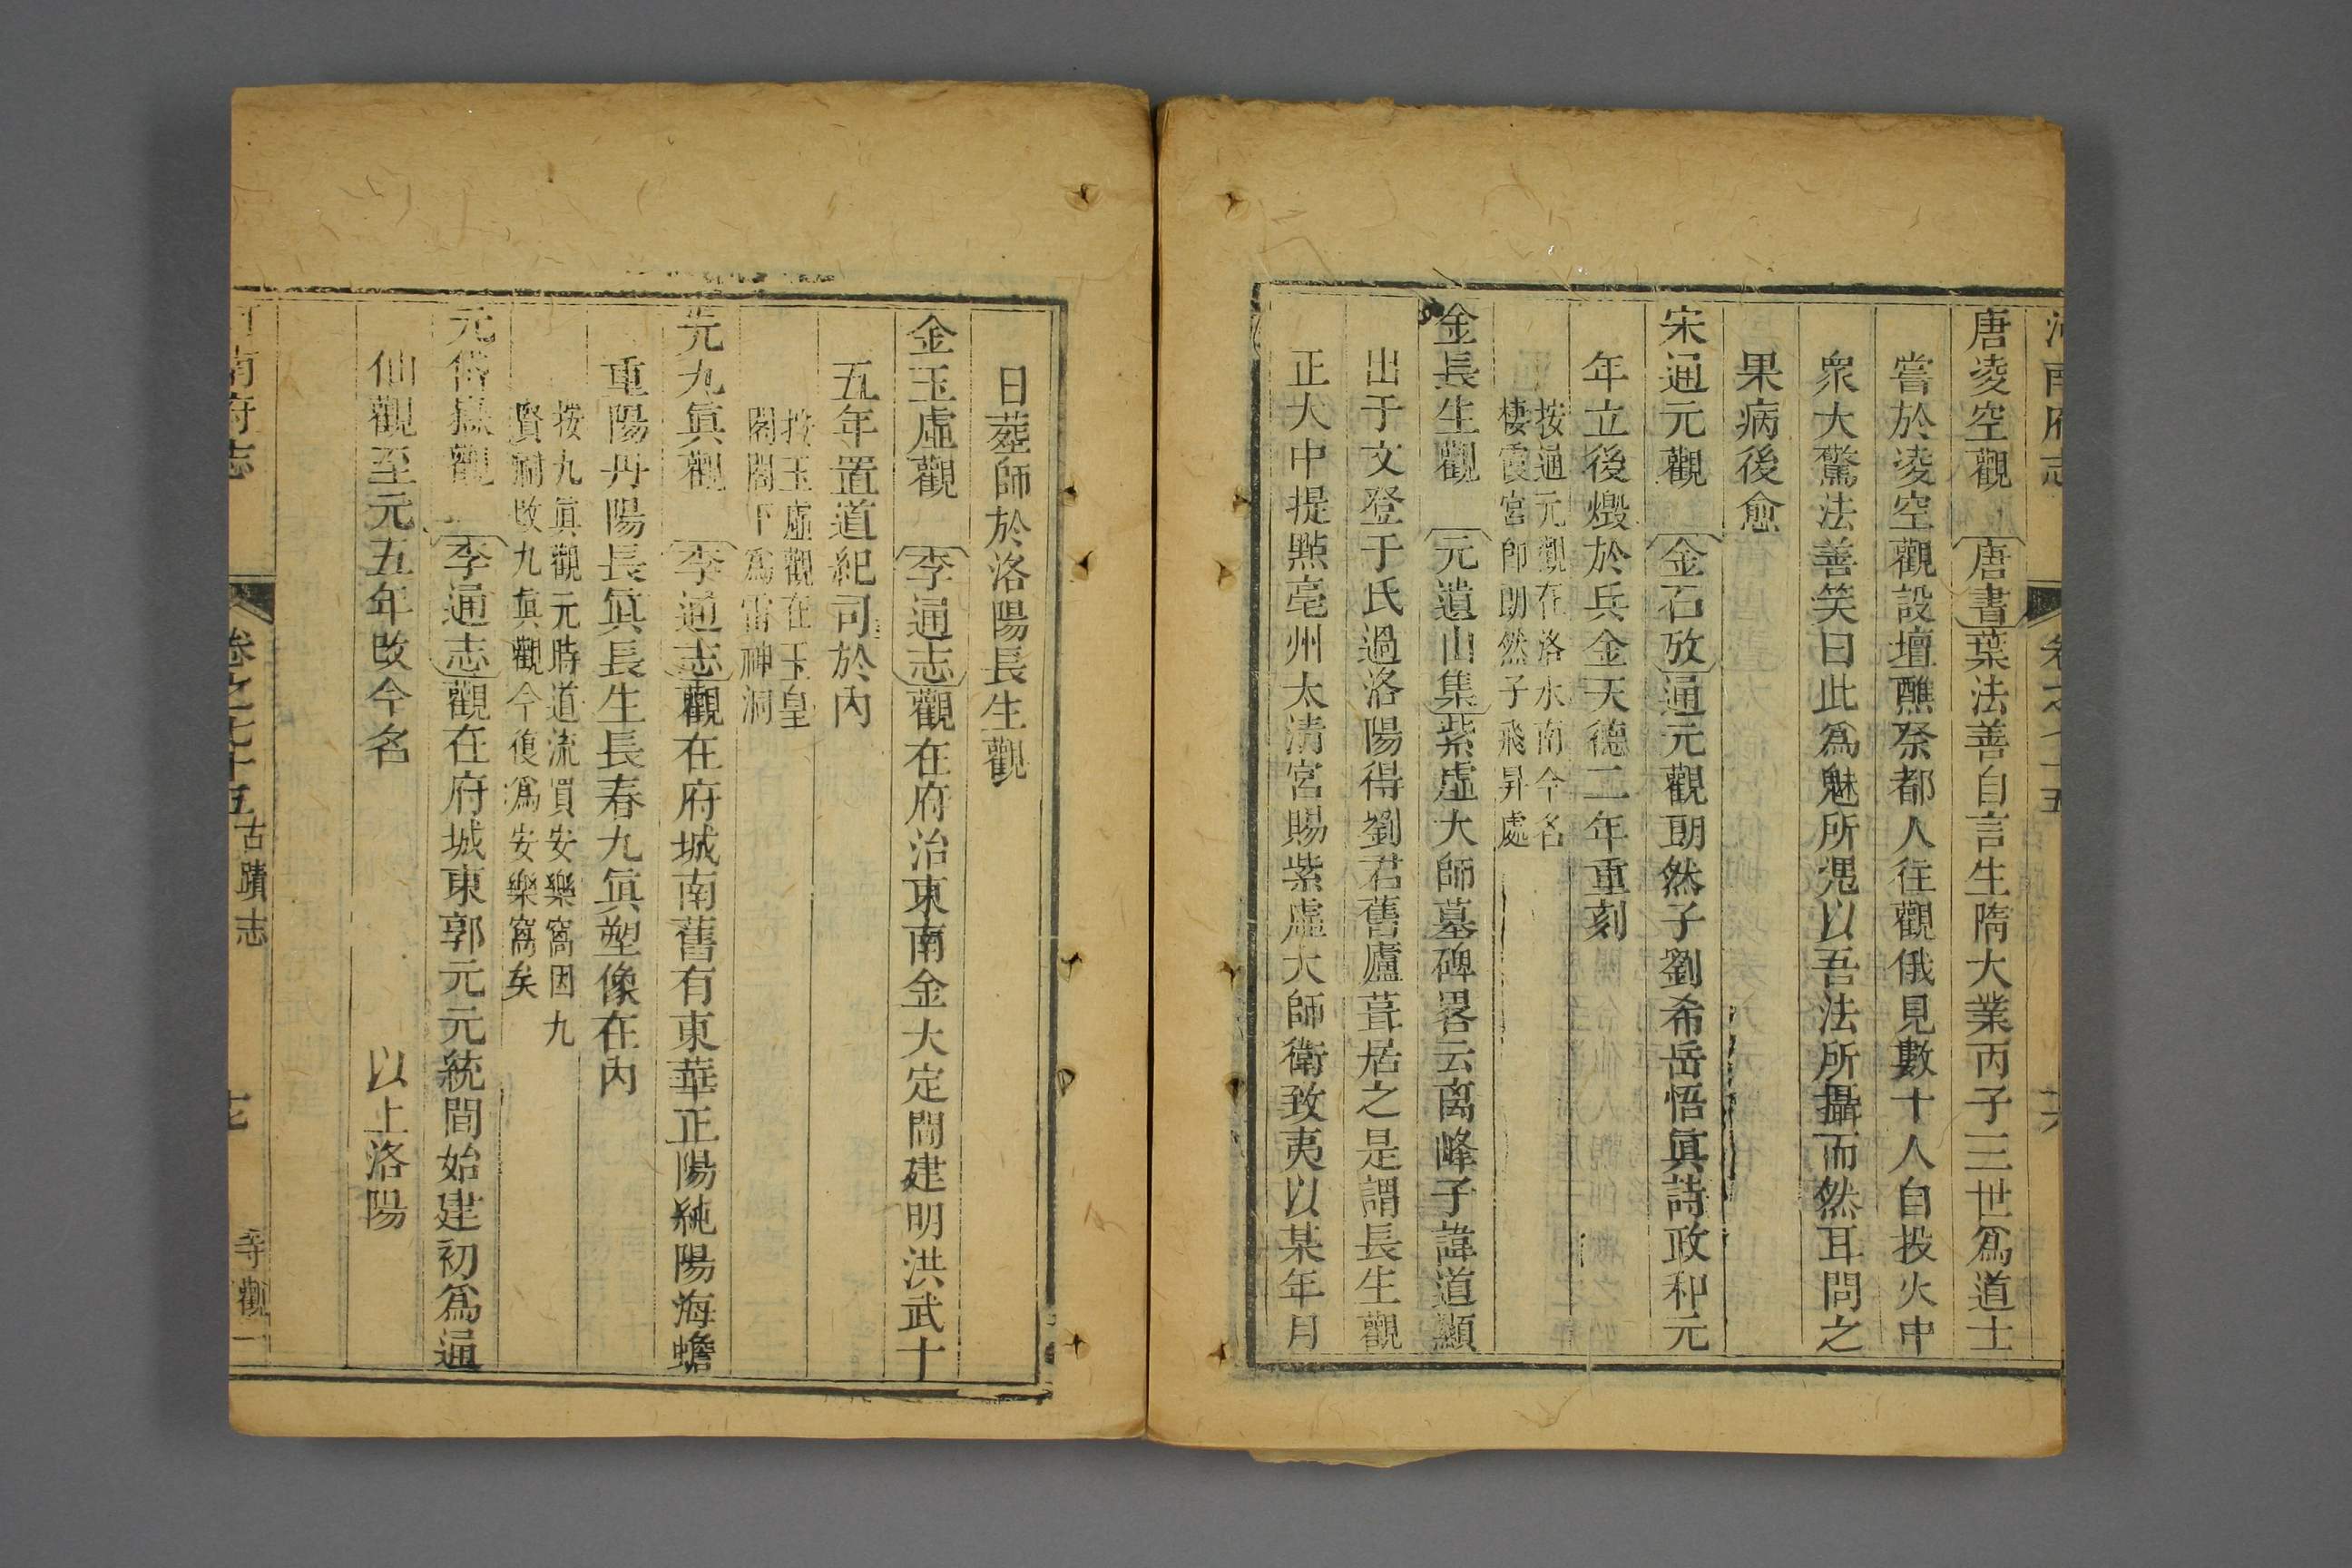 河南府志 卷之七十五 十六
唐凌空觀 唐書葉法善自言生隋大業丙子三世爲道士
嘗於凌空觀設壇醮祭都人往觀俄見數十人自投火中
衆大驚法善笑曰此爲魅所憑以吾法所攝而然耳問之
果病後愈
宋通元觀 金石攷通元觀朗然子劉希岳悟眞詩政和元
年立後燬於兵金天德二年重刻
按通元觀在洛水南今名
棲霞宮卽朗然子飛昇處
金長生觀 元遺山集紫虛大師墓碑畧云离峰子諱道顯
出于文登于氏過洛陽得劉君舊廬葺居之是謂長生觀
正大中提點亳州太清宮賜紫虛大師衛致夷以某年月
日葬師於洛陽長生觀
金玉虛觀 李通志觀在府治東南金大定間建明洪武十
五年置道紀司於內
按玉虛觀在玉皇
閣閣下爲雷神洞
元九眞觀 李通志觀在府城南舊有東華正陽純陽海蟾
重陽丹陽長眞長生長春九眞塑像在內
按九眞觀元時道流買安樂窩因九
賢祠改九眞觀今復爲安樂窩矣
元岱嶽觀 李通志觀在府城東郭元元統間始建初爲通
仙觀至元五年改今名 以上洛陽
河南府志 卷之七十五 古蹟志 七 寺觀一